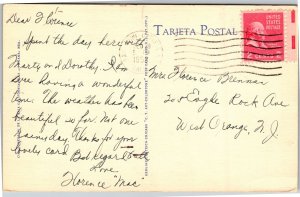 Dear Florence
Spent the day here with
Marty and Dorothy. Ron
Are Having a wonderful
time. The weather has been
beautiful so far. Not one
rainy day. Thanks for yr
lovely card
Best regards to all
Love,
Florence "Mac"
TARJETA POSTAL
UNITED STATES
POSTAGE
2 CENTS 2
Mrs Florence Brennan
200 Eagle Rock Ave
West Orange, N.J.